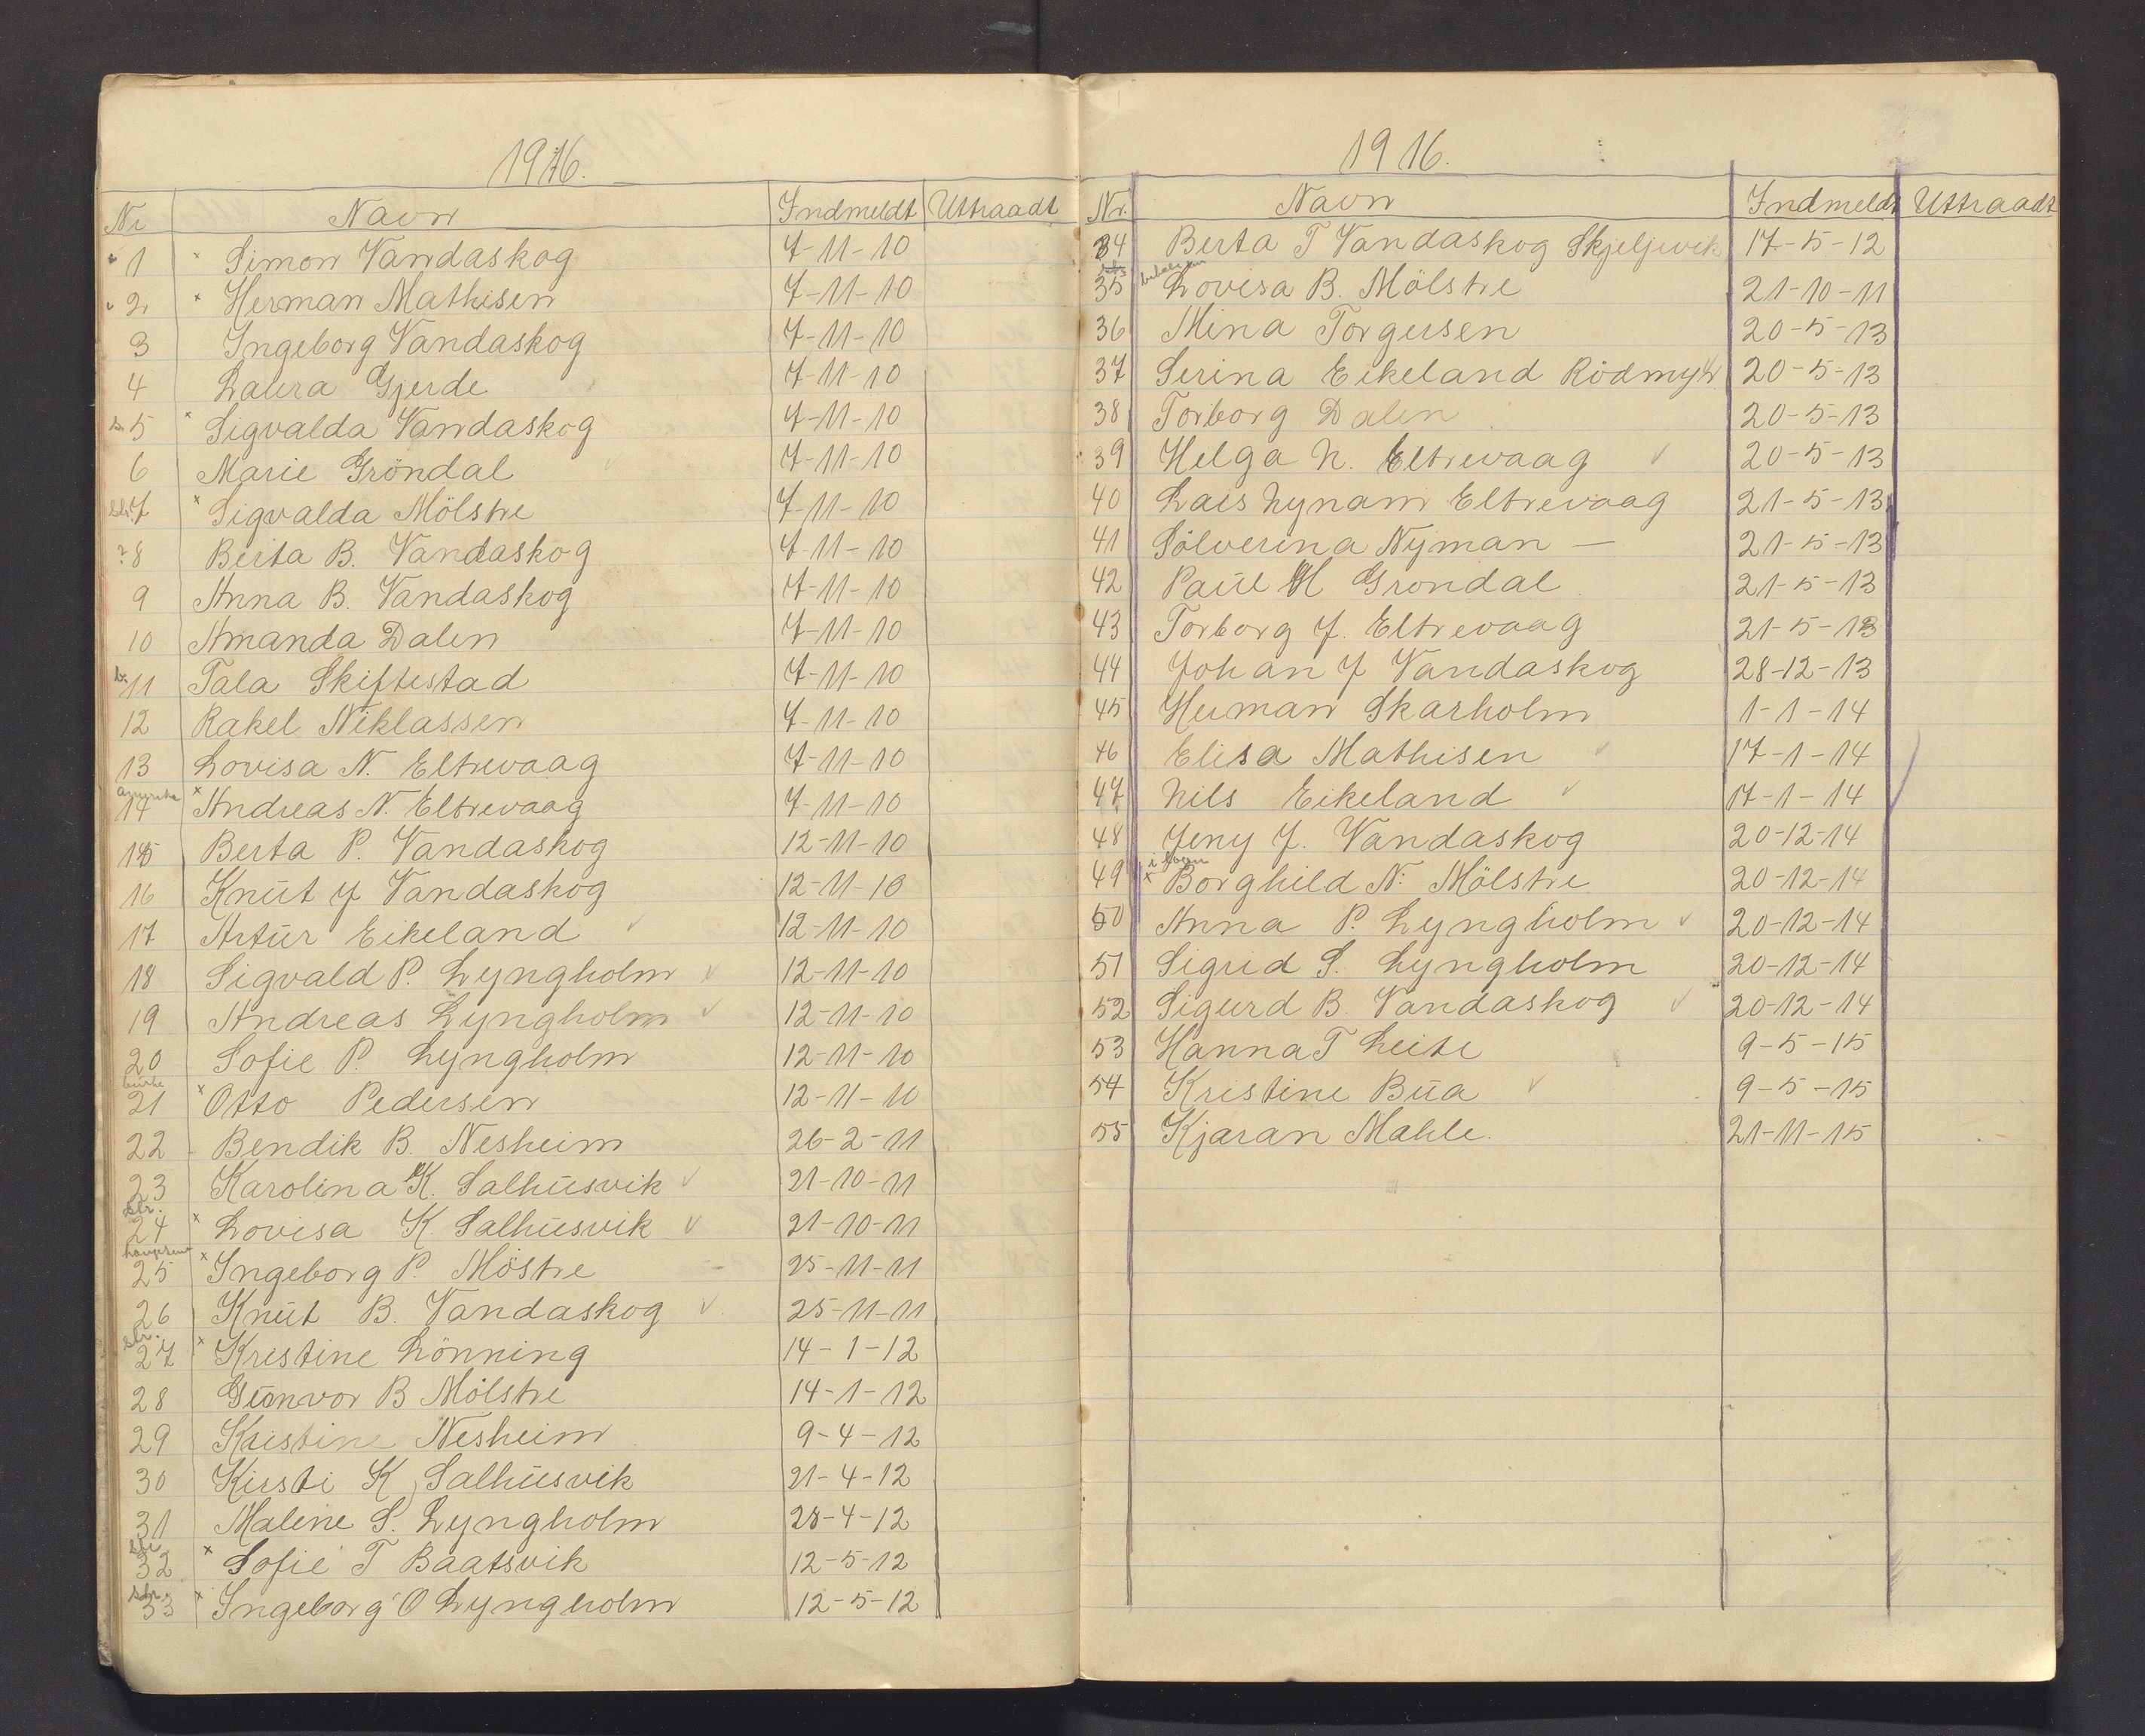 1916.
Nr Navn Indmeldt Uttraadt
1 Simon Vandaskog 7-11-10
2 x Herman Mathisen 7-11-10
3 Ingeborg Vandaskog 7-11-10
4 Laura Gjerde 7-11-10
5 x Sigvalda Vandaskog 7-11-10
6 Marie Gröndal 7-11-10
7 x Sigvalda Mölstre 7-11-10
? 8 Berta B. Vandaskog 7-11-10
9 Anna B. Vandaskog 7-11-10
10 Amanda Dalen 7-11-10
11 Tala Skiftestad 7-11-10
12 Rakel Niklassen 7-11-10
13 Lovisa N. Eltrevaag 7-11-10
amerika
14 x Andreas N. Eltrevaag 7-11-10
15 Berta P. Vandaskog 12-11-10
16 Knut J Vandaskog 12-11-10
17 Artur Eikeland ✓ 12-11-10
18 Sigvald P. Lyngholm ✓ 12-11-10
19 Andreas Lyngholm ✓ 12-11-10
20 Sofie P. Lyngholm 12-11-10
21 x Otto Pedersen 12-11-10
22 Bendik B. Nesheim 26-2-11
23 Karolina K. Salhusvik ✓ 21-10-11
slr.
24 x Lovisa K. Salhusvik ✓ 21-10-11
25 x Ingeborg P. Möstre 25-11-11
26 Knut B. Vandaskog ✓ 25-11-11
slr.
27 x Kristine Lönning 14-1-12
28 Gunvor B Mölstre 14-1-12
29 Kristine Nesheim 9-4-12
30 Kirsti K Salhusvik 21-4-12
31 Malene S. Lyngholm 28-4-12
slr
32 x Sofie T Baatsvik 12-5-12
slr.
33 x Ingeborg O Lyngholm 12-5-12
1916.
Nr. Navn Indmeldt Uttraadt
34 Berta T Vandaskog Skjeljevik 17-5-12
35 Lovisa B. Mölstre 21-10-11
36 Mina Torgersen 20-5-13
37 Serina Eikeland Rödmyr 20-5-13
38 Torborg Dalen 20-5-13
39 Helga N. Eltrevaag ✓ 20-5-13
40 Lais Nynam Eltrevaag 21-5-13
41 Sölverina Nyman — 21-5-13
42 Paul H Grondal 21-5-13
43 Torborg J. Eltrevaag 21-5-13
44 Johan J Vandaskog 28-12-13
45 Herman Skarholm 1-1-14
46 Elisa Mathisen ✓ 17-1-14
47 Nils Eikeland ✓ 17-1-14
48 Jeny J. Vandaskog 20-12-14
49 x Borghild N. Mölstre 20-12-14
50 Anna P. Lyngholm ✓ 20-12-14
51 Sigrid S. Lyngholm 20-12-14
52 Sigurd B. Vandaskog ✓ 20-12-14
53 Hanna T Leite 9-5-15
54 Kristine Bua ✓ 9-5-15
55 Kjaran Mahle. 21-11-15